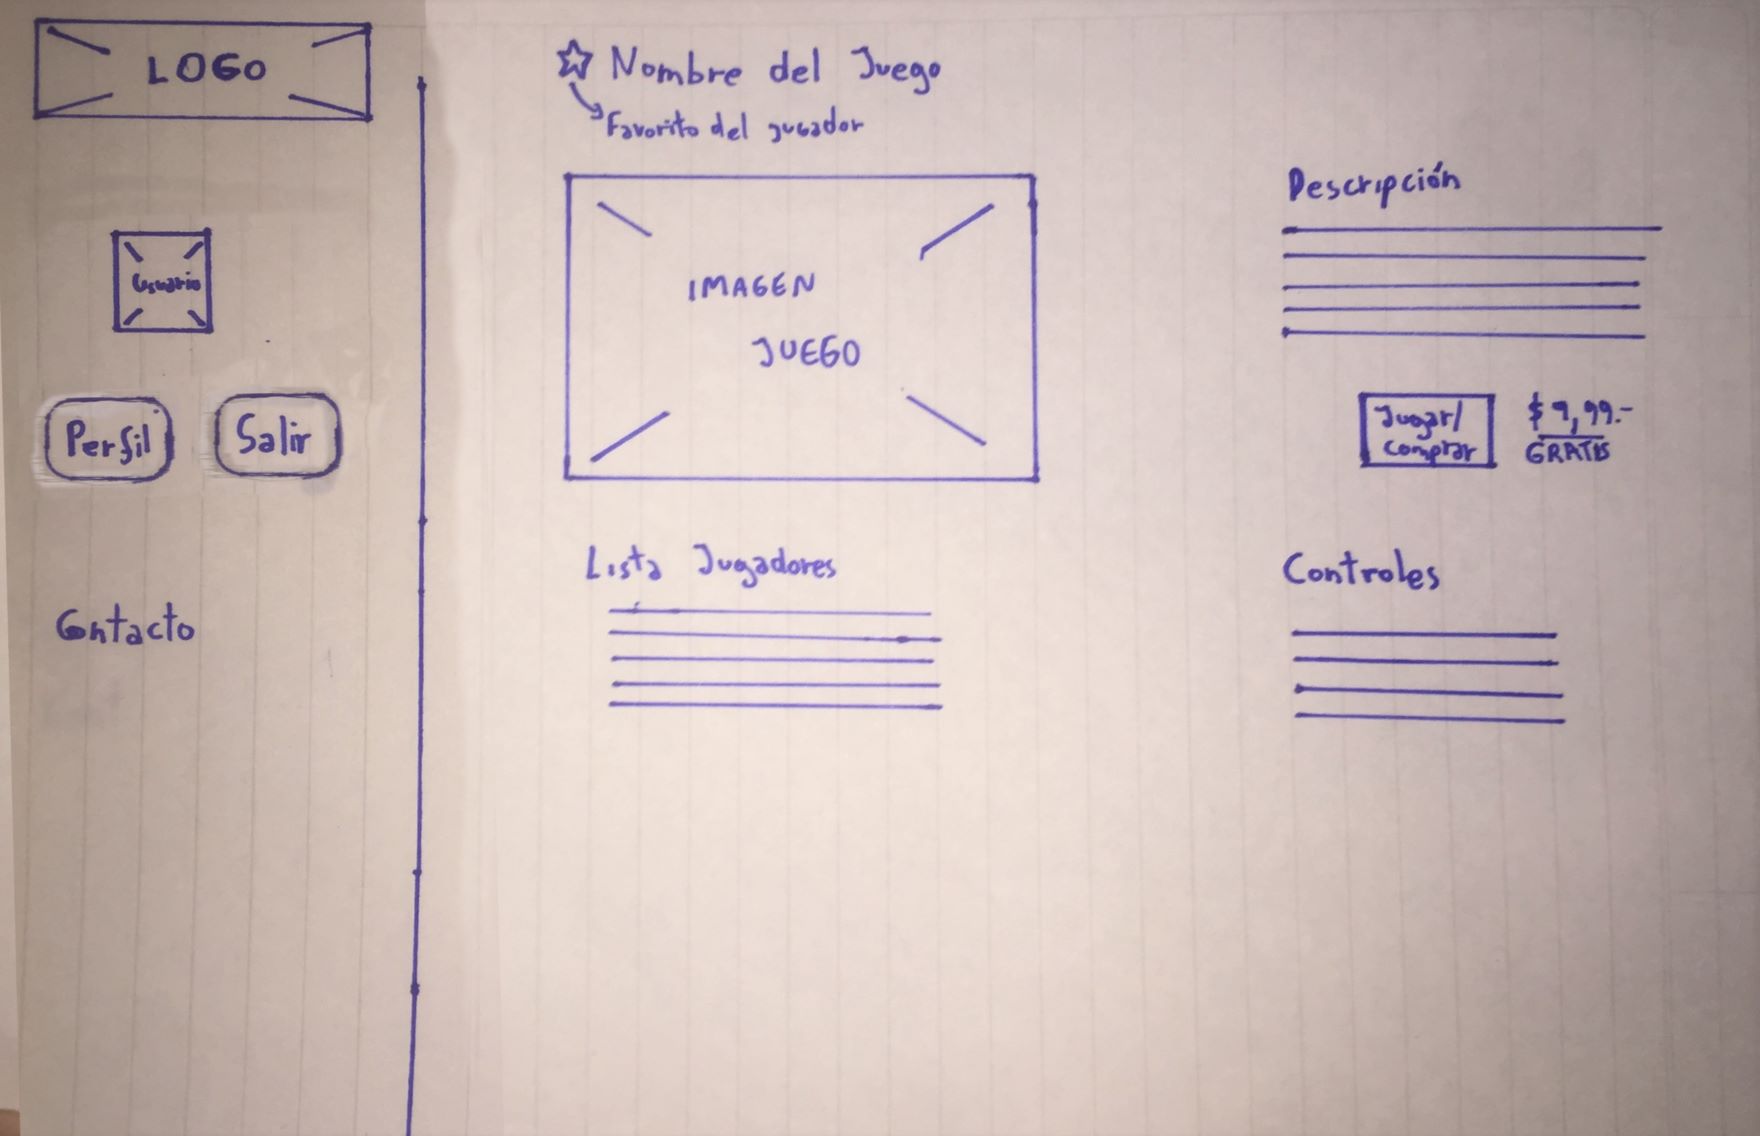 LOGO
Usuario
Perfil
Salir
Contacto
Nombre del Juego
Favorito del jugador
IMAGEN
JUEGO
Lista Jugadores
Descripción
Jugar/
comprar
$9,99.-
GRATIS
Controles